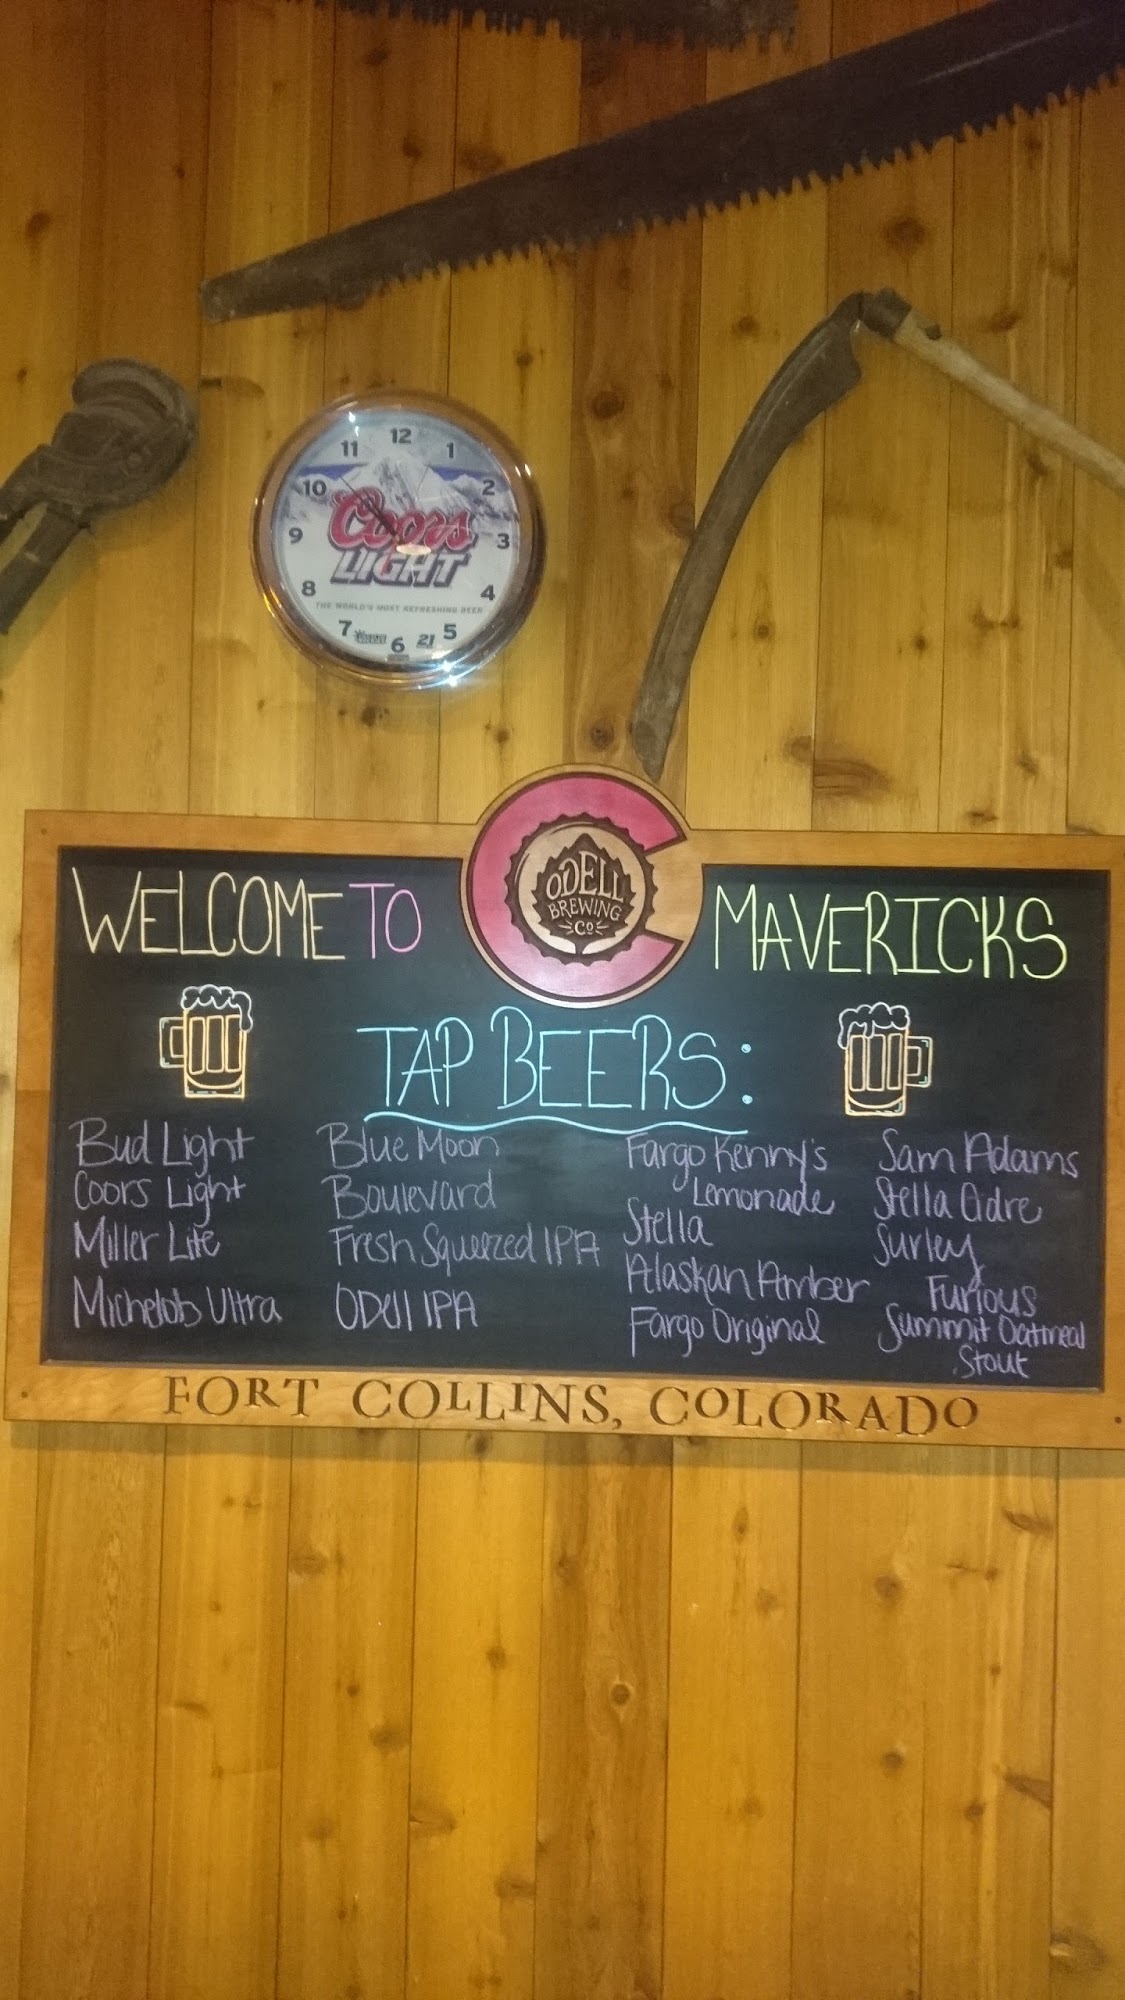 12
11 1
10 2
Coors
9 3
LIGHT
8 4
THE WORLD'S MOST REFRESHING BEER
7 5
21
6
ODELL
BREWING
Co
WELCOME TO MAVERICKS
TAP BEERS:
Bud Light
Coors Light
Miller Lite
Michelob Ultra
Blue Moon
Boulevard
Fresh Squeezed IPA
ODell IPA
Fargo Kenny's
Lemonade
Stella
Alaskan Amber
Fargo Original
Sam Adams
Stella Cidre
Surley
Furious
Summit Oatmeal
Stout
FORT COLLINS, COLORADO